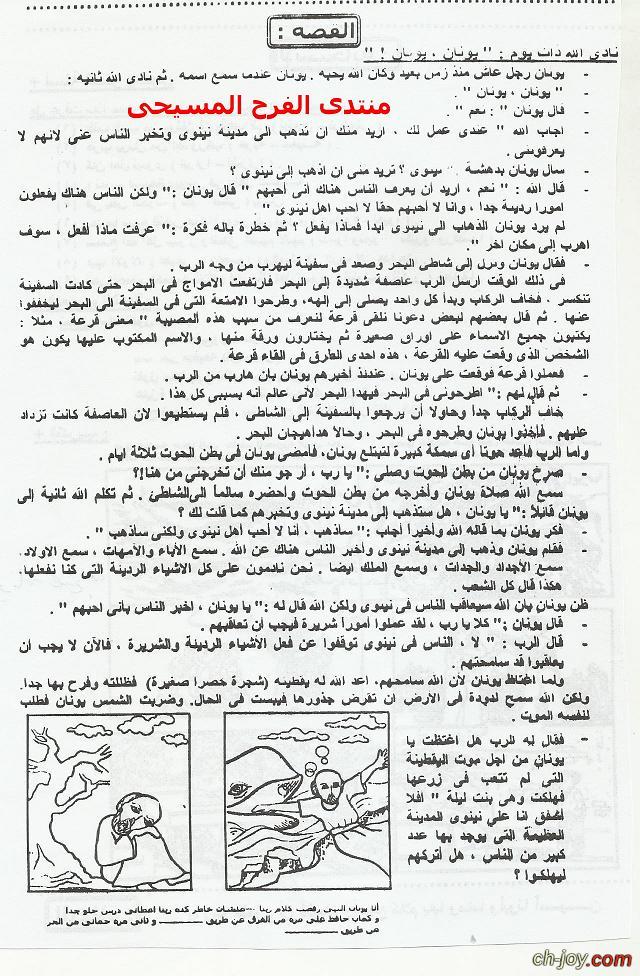 القصه :
نادى الله ذات يوم : " يونان ، يونان ! "
- يونان رجل عاش منذ زمن بعيد وكان الله يحبه . يونان عندما سمع اسمه . ثم نادى الله ثانيه :
- " يونان ، يونان " .
منتدى الفرح المسيحى
- قال يونان " : نعم " .
- اجاب الله " عندى عمل لك ، اريد منك ان تذهب الى مدينة نينوى وتخبر الناس عنى لانهم لا
يعرفوننى .
- سال يونان بدهشة نينوى ؟ تريد منى ان اذهب إلى نينوى ؟
- قال الله : " نعم ، أريد أن يعرف الناس هناك أنى أحبهم " قال يونان : " ولكن الناس هناك يفعلون
امورا رديئة جدا ، وانا لا أحبهم حقا لا احب اهل نينوى " .
لم يرد يونان الذهاب الى نينوى ابدا فماذا يفعل ؟ ثم خطرة باله فكرة : " عرفت ماذا أفعل ، سوف
اهرب إلى مكان آخر " .
- فقال يونان ونزل إلى شاطى البحر وصعد فى سفينة ليهرب من وجه الرب .
فى ذلك الوقت ارسل الرب عاصفة شديدة إلى البحر فارتفعت الامواج فى البحر حتى كادت السفينة
تنكسر ، فخاف الركاب وبدأ كل واحد يصلى إلى إلهه، وطرحوا الامتعة التى فى السفينة الى البحر ليخففوا
عنها . ثم قال بعضهم لبعض دعونا نلقى قرعة لنعرف من سبب هذه المصيبة " معنى قرعة ، مثلا :
يكتبون جميع الاسماء على اوراق صغيرة ثم يختارون ورقة منها ، والاسم المكتوب عليها يكون هو
الشخص الذى وقعت عليه القرعة ، هذه احدى الطرق فى القاء قرعة .
- فعملوا قرعة فوقعت على يونان . عندئذ أخبرهم يونان بأن هارب من الرب .
- ثم قال لهم : " اطرحونى فى البحر فيهدا البحر لأنى عالم أنه بسببى كل هذا .
خاف الركاب جدا وحاولا أن يرجعوا بالسفينة إلى الشاطى ، فلم يستطيعوا لان العاصفة كانت تزداد
عليهم . فأخذوا يونان وطرحوه فى البحر ، وحالا هدأهيجان البحر .
وأما الرب فأعد حوتا أى سمكة كبيرة لتبتلع يونان، فأمضى يونان فى بطن الحوت ثلاثة ايام .
- صرخ يونان من بطن الحوت وصلى : " يا رب ، أرجو منك أن تخرجنى من هنا!؟
- سمع الله صلاة يونان وأخرجه من بطن الحوت وأحضره سالماً الىالشاطئ . ثم تكلم الله ثانية إلى
يونان قائلاً : " يا يونان ، هل ستذهب إلى مدينة نينوى وتخبرهم كما قلت لك ؟
- فكر يونان بما قاله الله وأخيراً أجاب : " سأذهب ، أنا لا أحب أهل نينوى ولكنى سأذهب " .
- فقام يونان وذهب إلى مدينة نينوى وأخبر الناس هناك عن الله . سمع الأباء والأمهات ، سمع الاولاد،
سمع الأجداد والجدات ، وسمع الملك ايضا . نحن نادمون على كل الاشياء الرديئة التى كنا نفعلها،
هكذا قال كل الشعب .
ظن يونان بأن الله سيعاقب الناس فى نينوى ولكن الله قال له : " يا يونان ، اخبر الناس بأنى احبهم " .
- قال يونان : " كلا يا رب ، لقد عملوا أموراً شريرة فيجب أن تعاقبهم .
- قال الرب : " لا ، الناس فى نينوى توقفوا عن فعل الأشياء الرديئة والشريرة ، فالآن لا يجب أن
يعاقبوا قد سامحتهم .
- ولما اغتاظ يونان لأن الله سامحهم، اعد الله له يقطينه (شجرة خضرا صغيرة) فظللته وفرح بها جدا.
ولكن الله سمح لدودة فى الارض ان تقرض جذورها فيبست فى الحال. وضربت الشمس يونان فطلب
لنفسه الموت .
- فقال له الرب هل اغتظت يا
يونان من اجل موت اليقطينة
التى لم تتعب فى زرعها
فهلكت وهى بنت ليلة " أفلا
أشفق انا على نينوى المدينة
العظيمة التى يوجد بها عدد
كبير من الناس ، هل أتركهم
ليهلكوا ؟
أنا يونان النبى رفضت كلام ربنا علشان خاطر كده ربنا اعطانى درس حلو جدا
و كمان حافظ على مره من الغرق عن طريق ــــــــ و تانى مره حمانى من الحر
عن طريق ــــــــ
ch-joy.com